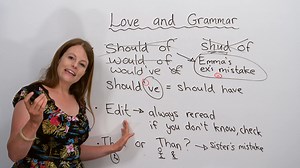 Love and Grammar
Should of Shud of
would of → Emma's
would've of ex's mistake
should've = should have
• Edit → always reread
if you don't know, check
• Th or Than? → Sister's mistake